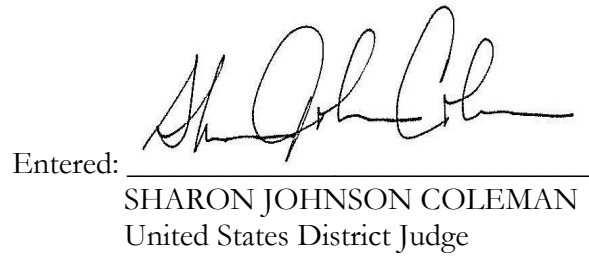 Entered:
SHARON JOHNSON COLEMAN
United States District Judge